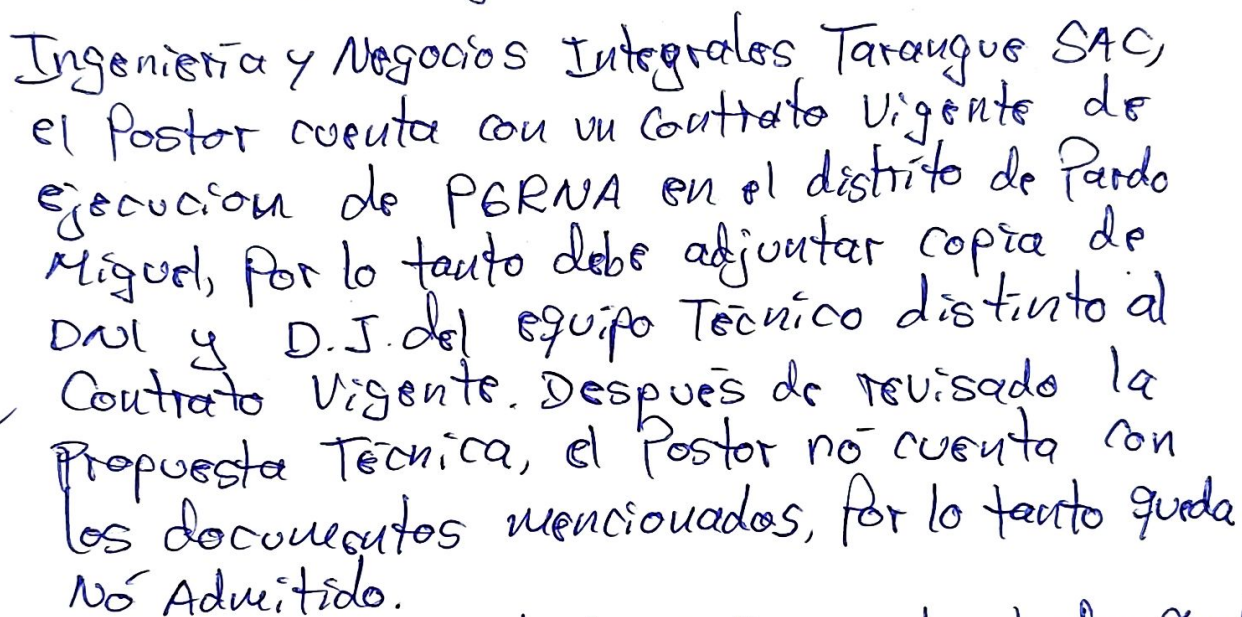 Ingeniería y Negocios Integrales Tarangue SAC,
el Postor cuenta con un Contrato Vigente de
ejecucion de PGRNA en el distrito de Pardo
Miguel, Por lo tanto debe adjuntar copia de
DNI y D.J. del equipo Técnico distinto al
Contrato Vigente. Después de revisado la
Propuesta Técnica, el Postor nó cuenta con
los documentos mencionados, Por lo tanto queda
Nó Admitido.